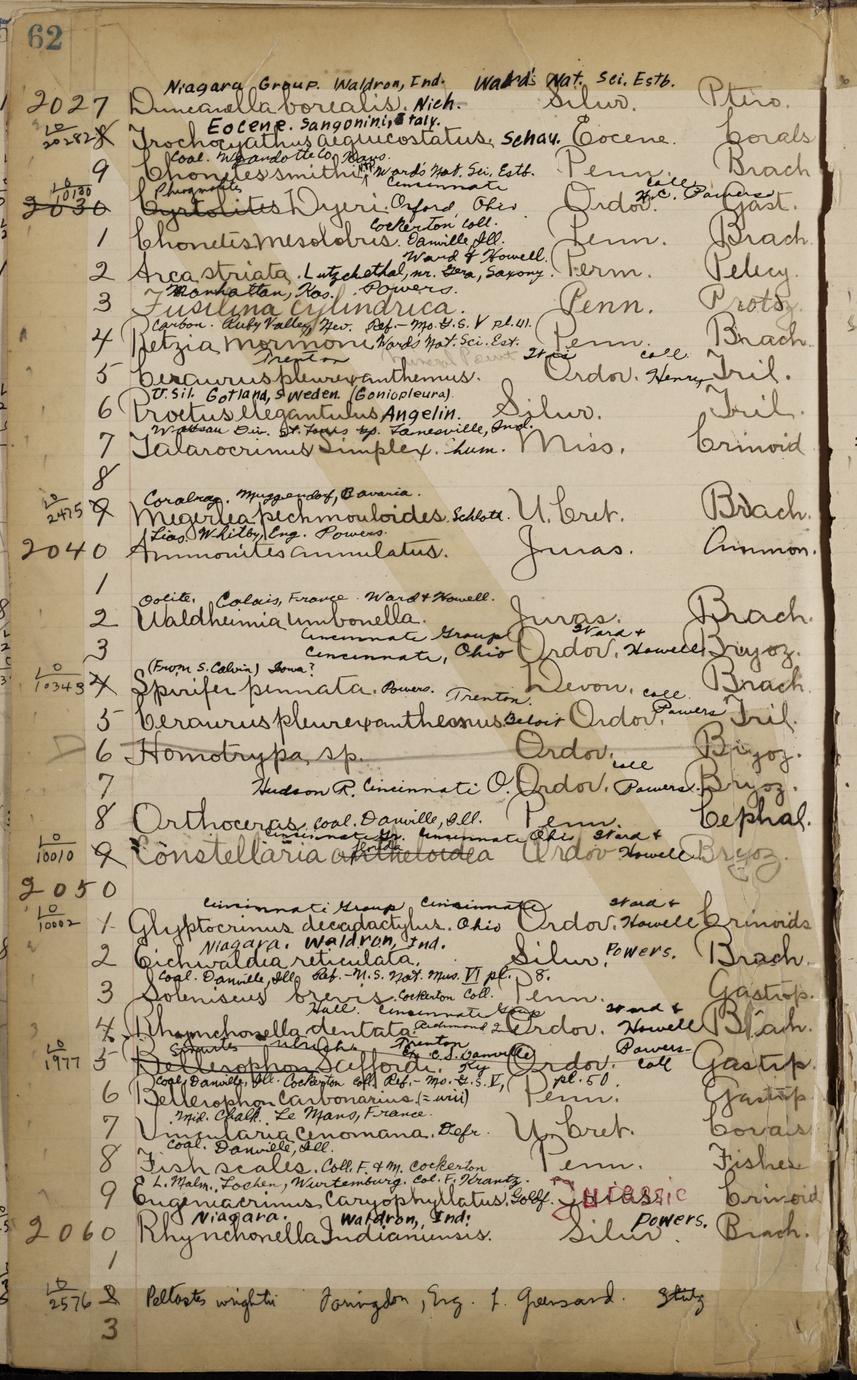 62
Niagara Group. Waldron, Ind. Ward's Nat. Sci. Estb.
2027 Duncanella borealis. Nich. Silur. Ptero.
Eocene. Sangonini, Italy.
10/20282 8 Trochocyathus aequicostatus. Schau. Eocene. Corals
Coal. Wyandotte Co, Kans.
9 Chonetes smithi Ward's Nat. Sci. Estb. Penn. Brach
10/10100 Phragmolites Cincinnati Coll
2030 Cyrtolites Dyeri. Oxford, Ohio Ordov. H.C. Powers Gast.
Cockerton Coll.
1 Chonetes mesolobus. Danville, Ill. Penn. Brach.
Ward & Howell.
2 Arca striata. Lutzchethal, nr. Gera, Saxony. Perm. Pelecy.
Manhattan, Kas. Powers.
3 Fusilina cylindrica. Penn. Protoz.
Carbon. Ruby Valley, Nev. Ref.- Mo. G.S. V pl. 41.
4 Retzia mormoni Ward's Nat. Sci. Est. Penn. Brach.
Trenton coll.
5 Ceraurus pleurexanthemus. Ordov. Henry Tril.
U. Sil. Gotland, Sweden. (Goniopleura)
6 Proetus elegantulus Angelin. Silur. Tril.
Warsaw Div. St. Louis Gp. Lanesville, Ind.
7 Talarocrinus Simplex. Shum. Miss. Crinoid
8
Coralrag. Muggendorf, Bavaria.
10/2475 9 Megerlea pechmouloides. Schloth. U. Cret. Brach.
Lias, Whitby, Eng. Powers.
2040 Ammonites annulatus. Juras. Ammon.
1
Oolite. Calais, France. Ward & Howell.
2 Waldheimia umbonella. Juras. Brach.
Cincinnati Group Ward &
3 Cincinnati, Ohio Ordov. Howell Bryoz.
(From S. Calvin) Iowa?
10/10343 4 Spirifer pennata. Powers. Devon. Brach.
Trenton. coll.
5 Ceraurus pleurexanthemus Beloit Ordov. Powers Tril.
6 Homotrypa sp. Ordov. Bryoz.
coll
7 Hudson R. Cincinnati O. Ordov. Powers. Bryoz.
8 Orthoceras Coal. Danville, Ill. Penn. Cephal.
Cincinnati Gr. Cincinnati Ohio Ward &
10/10010 9 Constellaria antheloidea florida Ordov Howell Bryoz.
2050
Cincinnati Group Cincinnati Ward &
10/10002 1 Glyptocrinus decadactylus. Ohio Ordov. Howell Crinoids
Niagara. Waldron, Ind.
2 Eichwaldia reticulata. Silur. Powers. Brach.
Coal. Danville, Ill. Ref.- N.S. Nat. Mus. VI pl. 8.
3 Soleniscus brevis. Cockerton Coll. Penn. Gastrop.
Hall. Cincinnati Group Ward &
4 Rhynchonella dentata Richmond Ordov. Howell Brach.
Trenton Powers-
10/1977 5 Bellerophon Saffordi. Danville Ky Ordov. coll Gastrp.
Coal, Danville, Ill. Cockerton Coll. Ref.- Mo. G.S. V, pl. 50.
6 Bellerophon carbonarius. (= urii) Penn. Gastrop
Mid. Chalk. Le Mans, France.
7 Unicularia cenomana. Defr. U. Cret. Corals
Coal. Danville, Ill.
8 Fish scales. Coll. F. & M. Cockerton Penn. Fishes
E. L. Malm. Lochen, Wurtemburg. Col. F. Krantz.
9 Eugeniacrinus Caryophyllatus. Goldf. Jurassic Crinoid
Niagara. Waldron, Ind. Powers.
2060 Rhynchonella Indianensis. Silur. Brach.
1
10/2576 2 Peltastes wrightii Faringdon, Eng. L. Greensand. Stutz
3